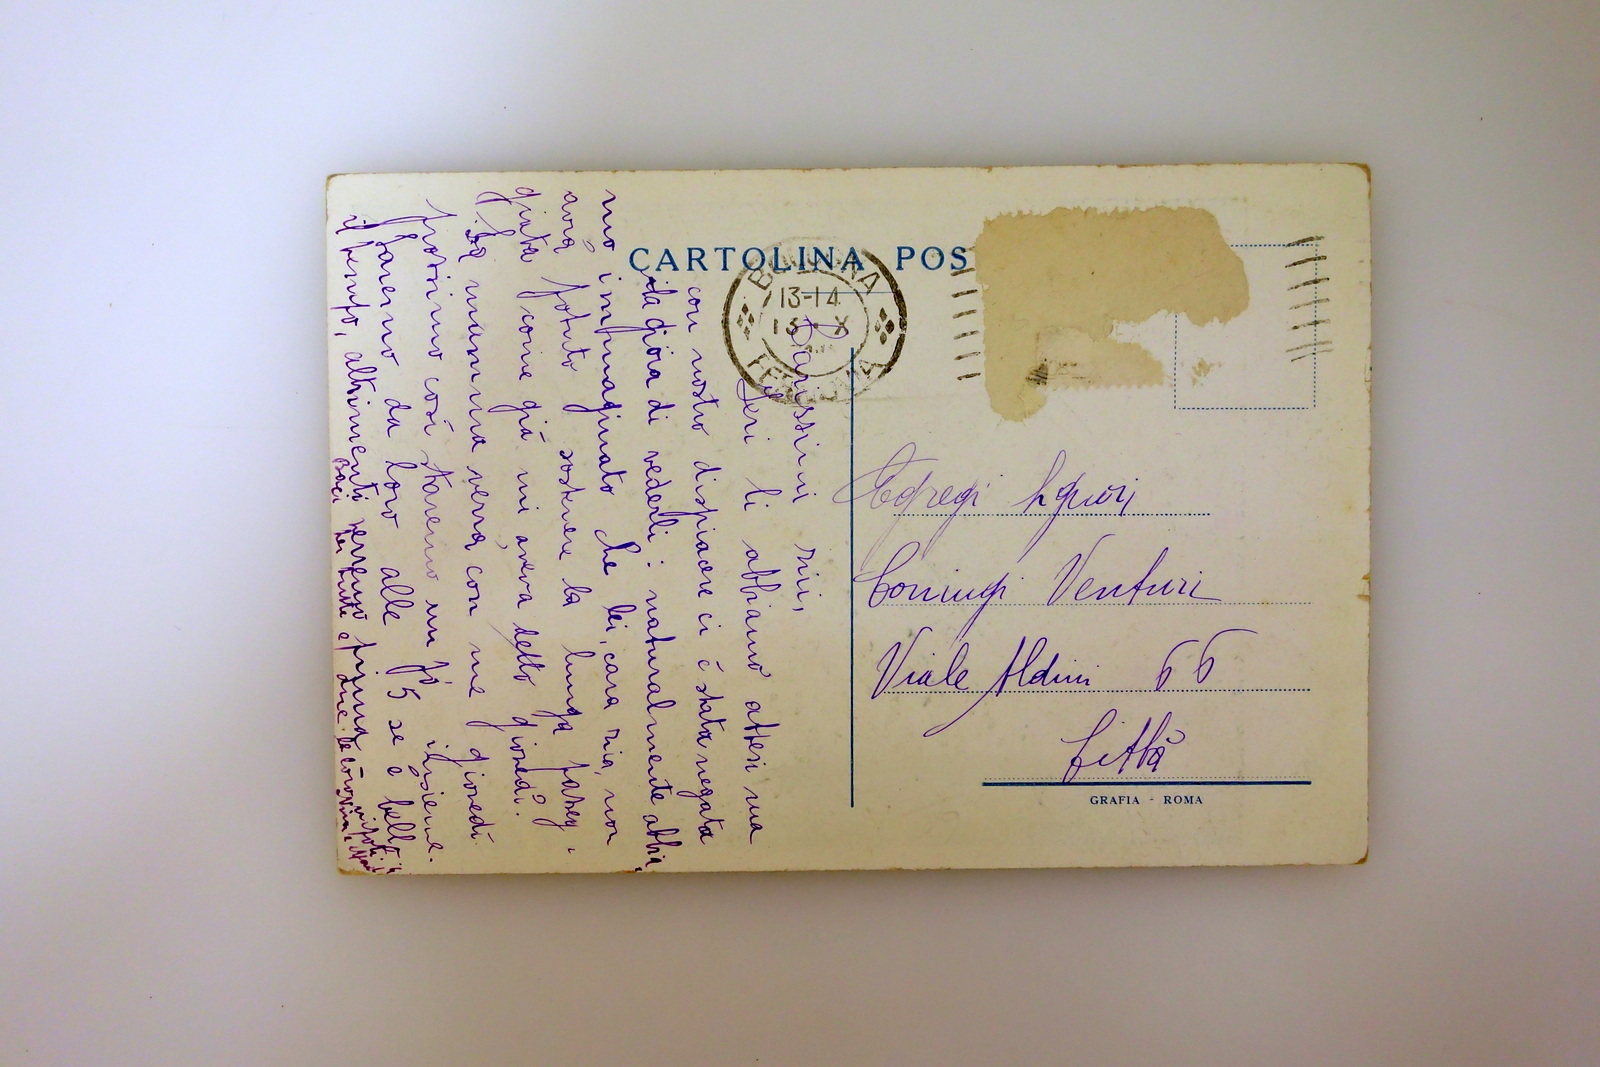 CARTOLINA POS
BOLOGNA
13-14
13 X
FERROVIA
Carissimi miei,
Ieri li abbiamo attesi ma
con nostro dispiacere ci è stata negata
la gioia di vederli: naturalmente abbia,
mo immaginato che lei, cara zia, non
avrà potuto sostenere la lunga passeg,
giata come già mi aveva detto giovedì.
La mamma verrà con me giovedì
prossimo così staremo un pò insieme.
Saremo da loro alle 15 se è bello
il tempo, altrimenti verremo prima
Baci tutte e due le
Egregi Signori
Coniugi Venturi
Viale Aldini 66
Città
GRAFIA - ROMA